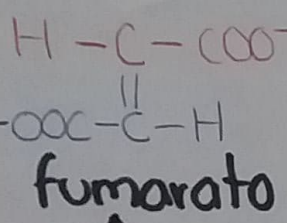 H - C - COO⁻
||
⁻OOC - C - H
fumarato